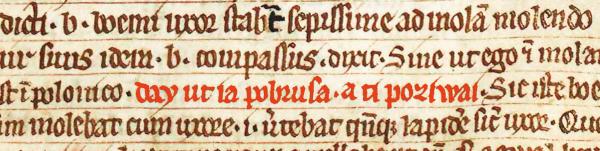 dicti · b · boemi uxor stab̄t sepissime ad molā molendo
uir suus idem · b · compassus · dixit · Sine ut ego ⁊ molam
st ī polonico · day ut ia pobrusa · a ti poziwai · Sic iste boe
im molebat cum uxore · i · u̓tebat qn̄q lapidē sic̄ uxor · Quo